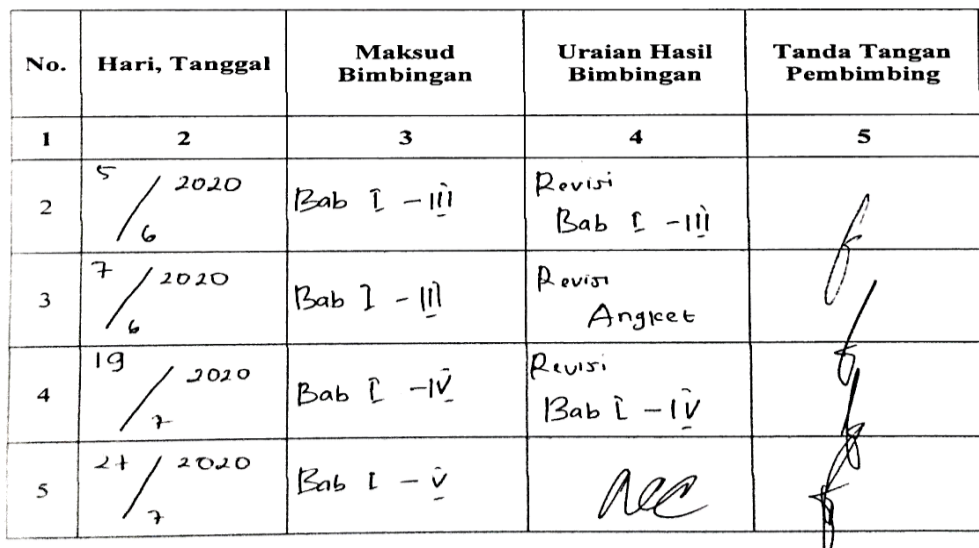 No. Hari, Tanggal Maksud Bimbingan Uraian Hasil Bimbingan Tanda Tangan Pembimbing
1 2 3 4 5
2 5/6 2020 Bab I - III Revisi Bab I - III
3 7/6 2020 Bab I - III Revisi Angket
4 19/7 2020 Bab I - IV Revisi Bab I - IV
5 27/7 2020 Bab I - V ACC